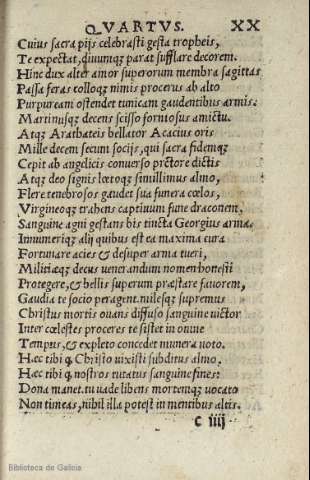 QVARTVS. XX
Cuius sacra pijs celebrasti gesta tropheis,
Te expectat, diuumqꝫ parat sufflare decorem.
Hinc dux alter amor superorum membra sagittas
Passa feras colloqꝫ nimis procerus ab alto
Purpuream ostendet tunicam gaudentibus armis.
Martinusqꝫ decens scisso formosus amictu.
Atqꝫ Arathateis bellator Acacius oris
Mille decem secum socijs, qui sacra fidemqꝫ
Cepit ab angelicis conuerso pectore dictis
Atqꝫ deo signis lœtoqꝫ simillimus almo,
Flere tenebrosos gaudet sua funera cœlos,
Virgineoqꝫ trahens captiuum fune draconem,
Sanguine agni gestans bis tincta Georgius arma.
Innumeriqꝫ alij quibus est ea maxima cura
Fortunare acies & desuper arma tueri,
Militiæqꝫ decus uenerandum nomen honesti
Protegere, & bellis superum præstare fauorem,
Gaudia te socio peragent. milesqꝫ supremus
Christus mortis ouans diffuso sanguine uictor
Inter cœlestes proceres te sistet in omne
Tempus, & expleto concedet munera uoto.
Hæc tibi ꝙ Christo uixisti subditus almo.
Hæc tibi ꝙ nostros tutatus sanguine fines:
Dona manet. tu uade libens mortemqꝫ uocato
Non timeas, nihil illa potest in mentibus altis.
C iiij
Biblioteca de Galicia